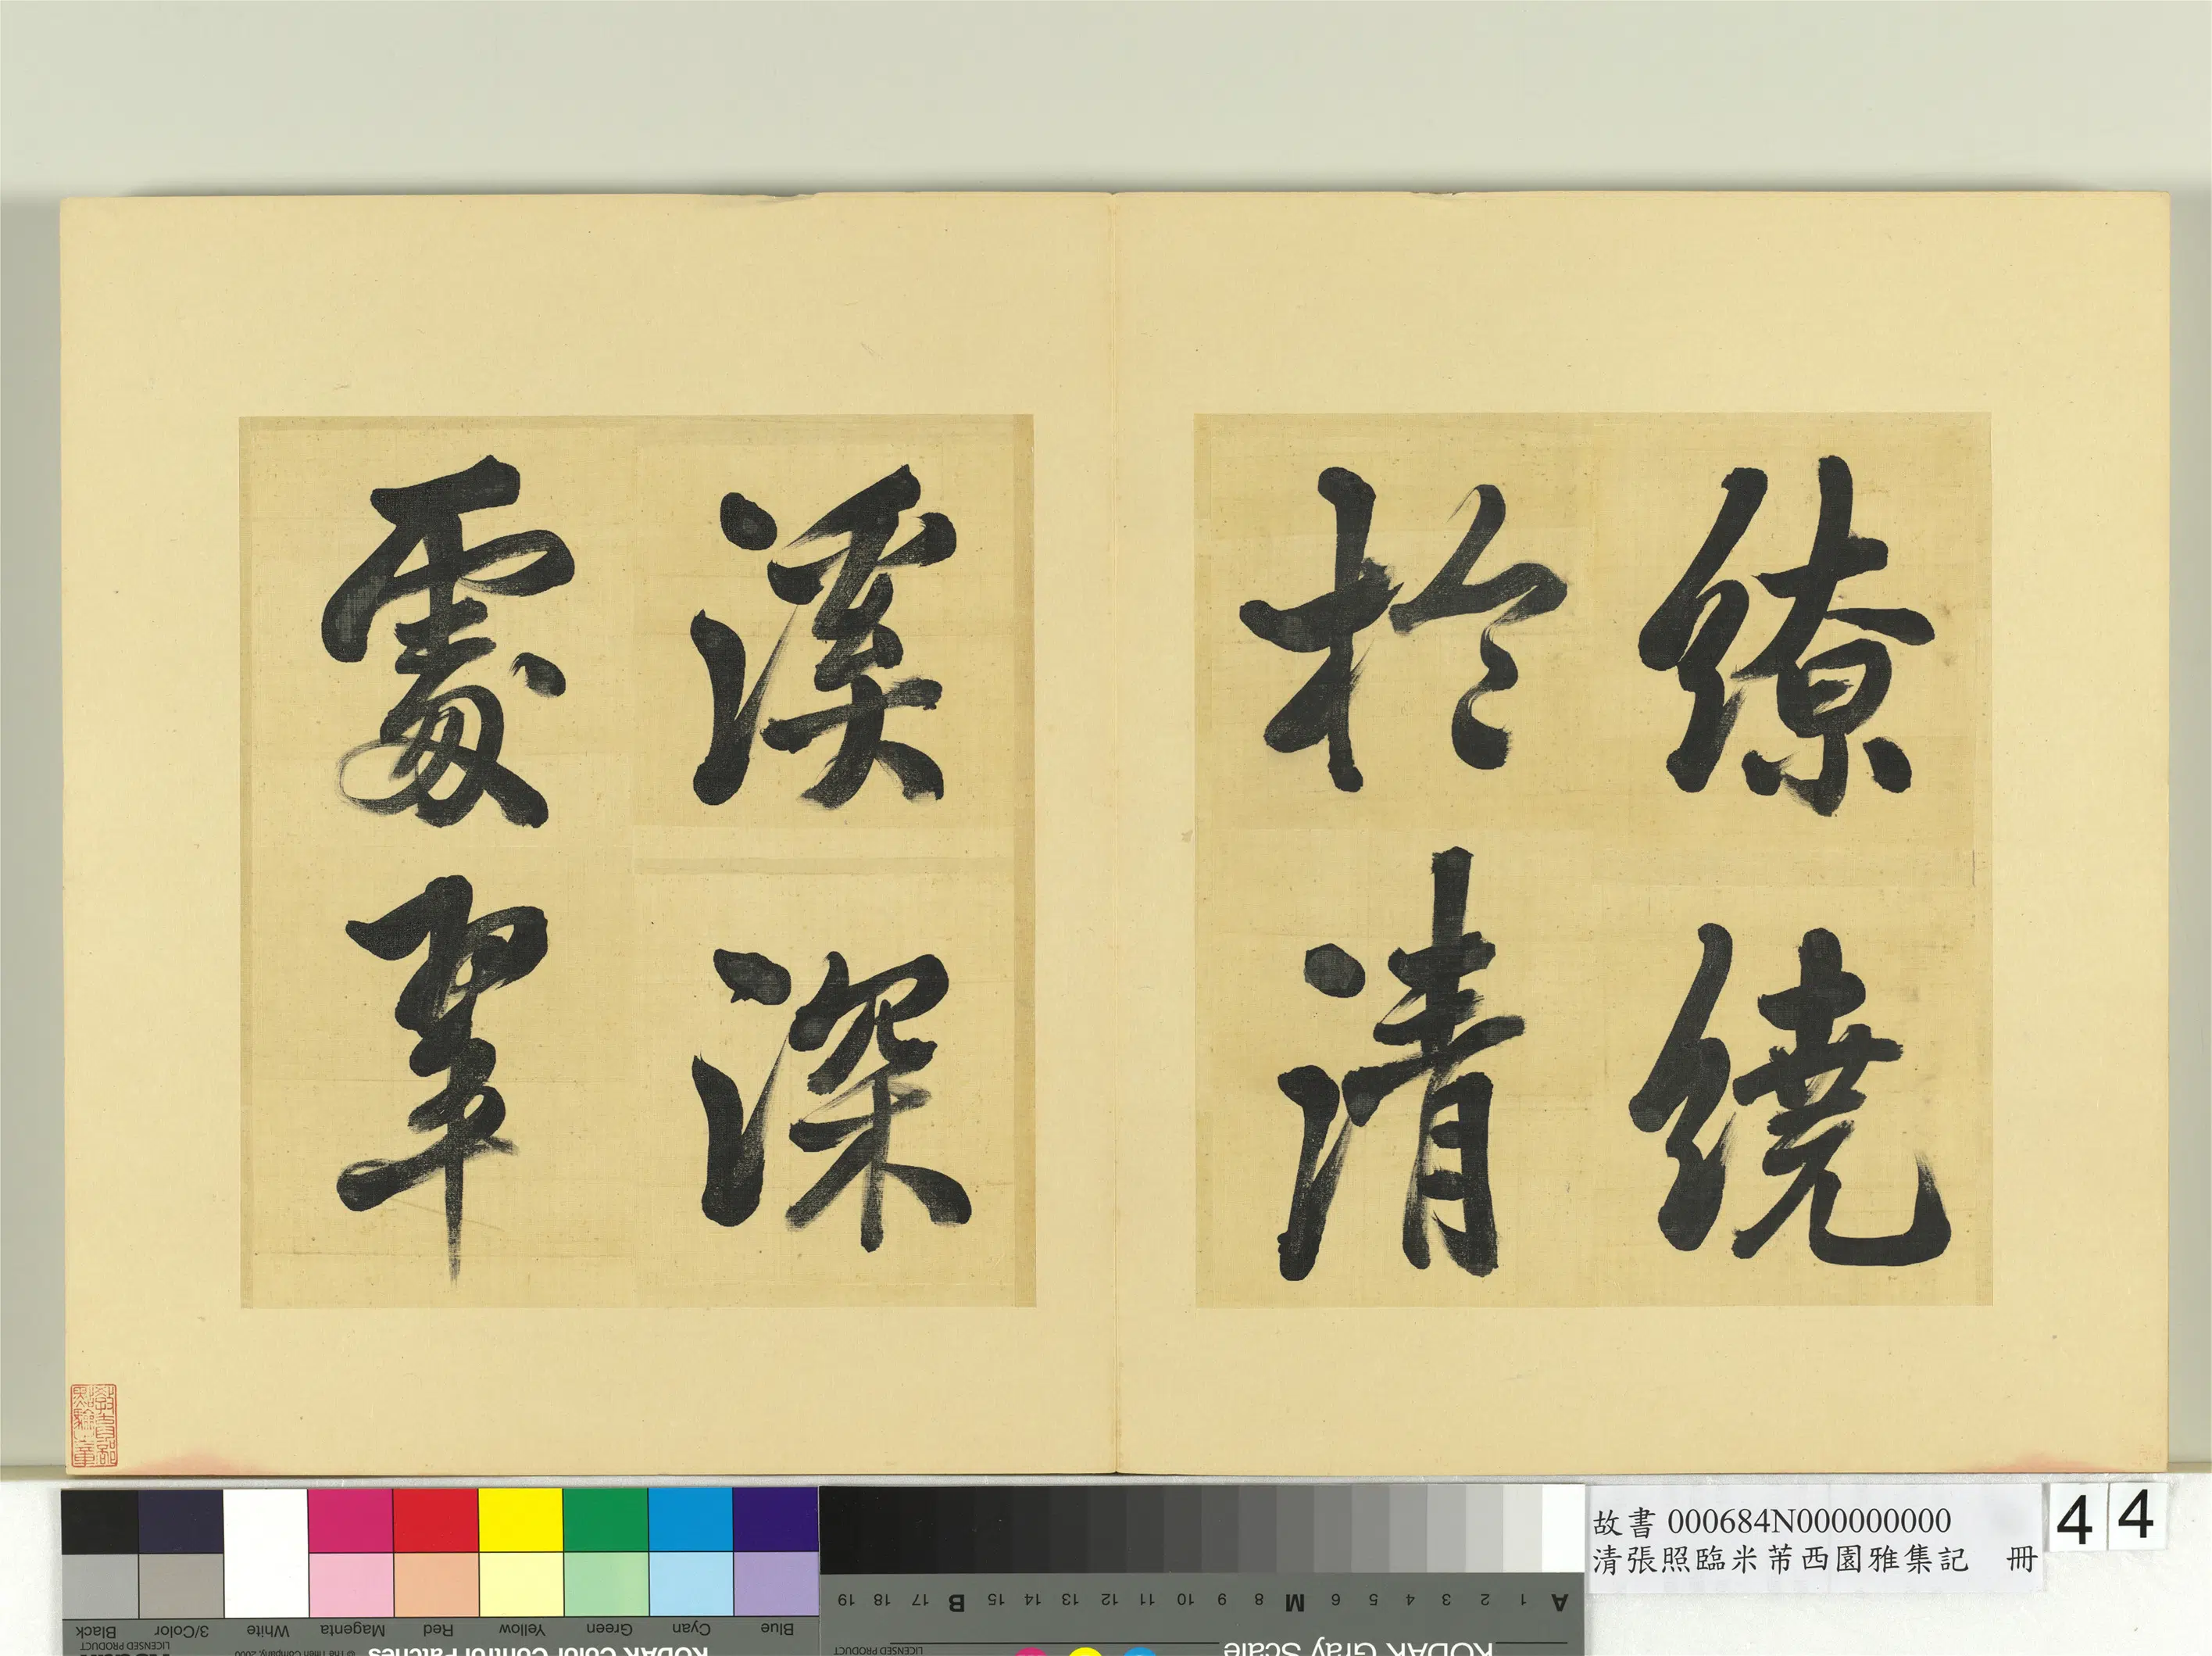 繚繞
於清
溪深
處翠
教育部
點驗之章
故書 000684N000000000
清張照臨米芾西園雅集記 冊
4 4
Black
3/Color
White
Magenta
Red
Yellow
Green
Cyan
Blue
LICENSED PRODUCT
KODAK Color Control Patches
A 1 2 3 4 5 6 M 8 9 10 11 12 13 14 15 B 17 18 19
KODAK Gray Scale
LICENSED PRODUCT